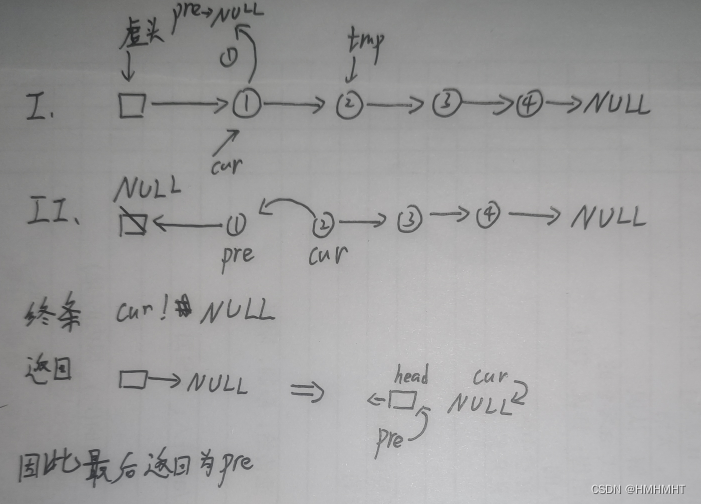 虚头 pre→NULL
① tmp
I. □ → ① → ② → ③ → ④ → NULL
cur
NULL
II. ← ① ② → ③ → ④ → NULL
pre cur
终条 cur! NULL
返回 □ → NULL ⇒ head cur
← □ NULL
pre
因此最后返回为pre
CSDN @HMHMHT